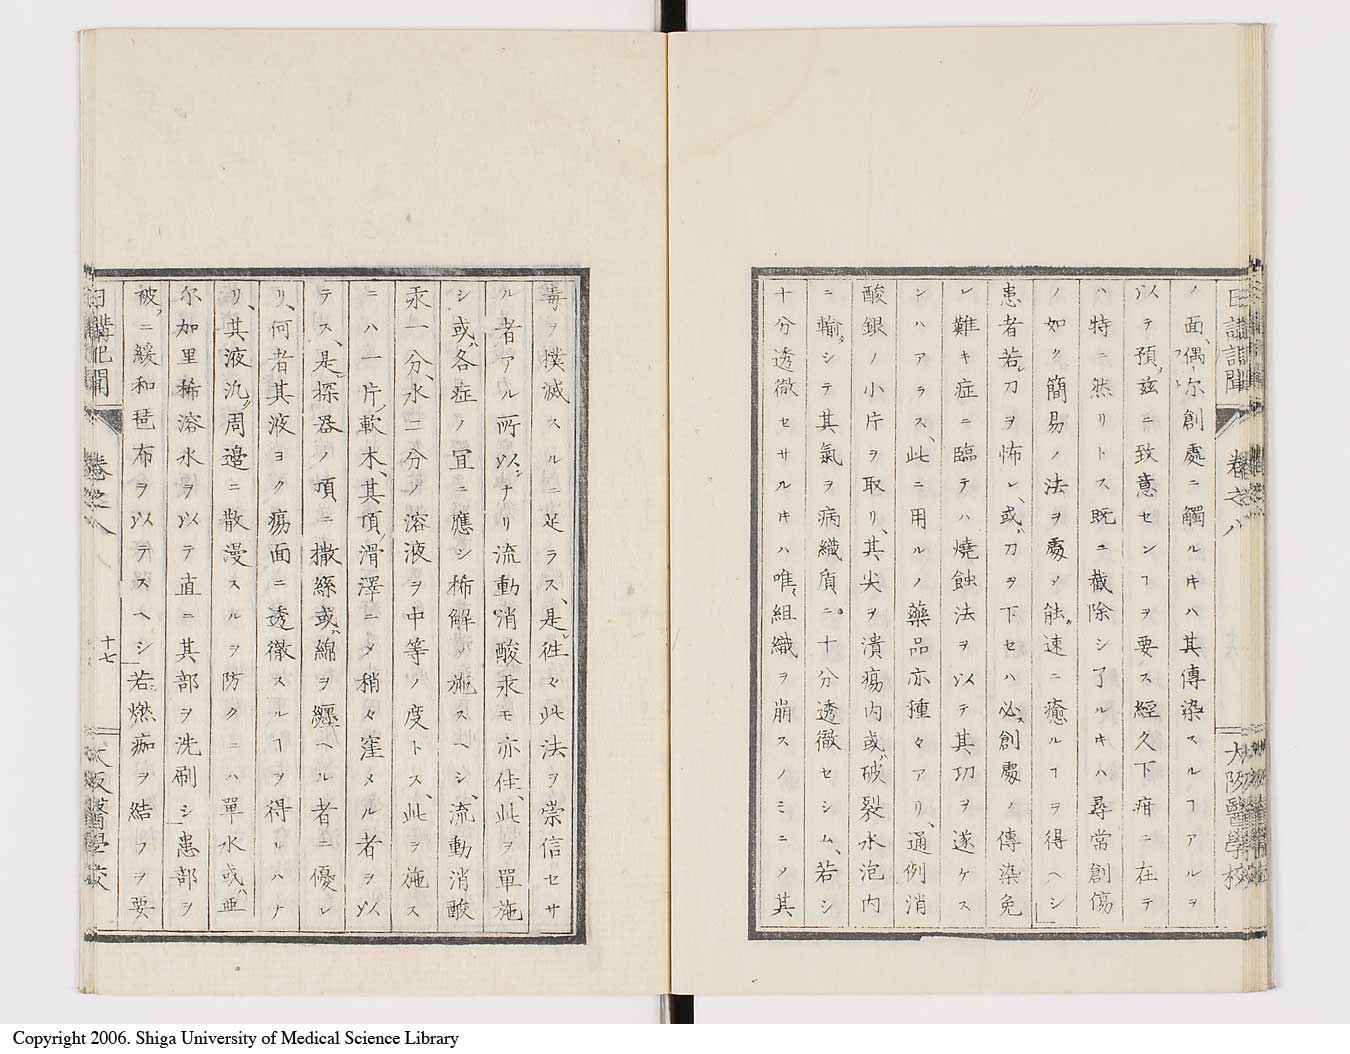 ノ面、偶尔創處ニ觸ルヰハ其傳染スルヿアルヲ
以テ預メ玆ニ致意センヿヲ要ス經久下疳ニ在テ
ハ特ニ然リトス既ニ截除シ了ルヰハ尋常創傷
ノ如ク簡易ノ法ヲ處ソ能速ニ癒ルヿヲ得ヘシ
患者若シ刀ヲ怖レ、或ハ刀ヲ下セハ必ス創處ノ傳染免
レ難キ症ニ臨テハ燒蝕法ヲ以テ其功ヲ遂ケス
ンハアラス、此ニ用ルノ藥品亦種々アリ、通例消
酸銀ノ小片ヲ取リ、其尖ヲ潰瘍内或ハ破裂水泡内
ニ輸シテ其氣ヲ病織質ニ十分透徹セシム、若シ
十分透徹セサルヰハ唯組織ヲ崩スノミニメ其
毒ヲ撲滅スルニ足ラス、是レ徃々此法ヲ崇信セサ
ル者アル所以ナリ流動消酸汞モ亦佳、此ヲ單施
シ或ハ各症ノ冝ニ應シ稀解ノ施スヘシ、流動消酸
汞一分、水二分ノ溶液ヲ中等ノ度トス、此ヲ施ス
ニハ一片ノ軟木、其頂滑澤ニメ稍々窪メル者ヲ以
テス、是レ探器ノ項ニ撒絲或ハ綿ヲ纒ヘル者ニ優レ
リ、何者其液ヨク瘍面ニ透徹スルヿヲ得レハナ
リ、其液汎ク周邉ニ散漫スルヲ防クニハ單水或ハ亜
尔加里稀溶水ヲ以テ直ニ其部ヲ洗刷シ患部ヲ
被フニ緩和琶布ヲ以テスヘシ若シ燃痂ヲ結フヲ要
日講記聞 卷之八 十七 大阪醫學校
Copyright 2006. Shiga University of Medical Science Library